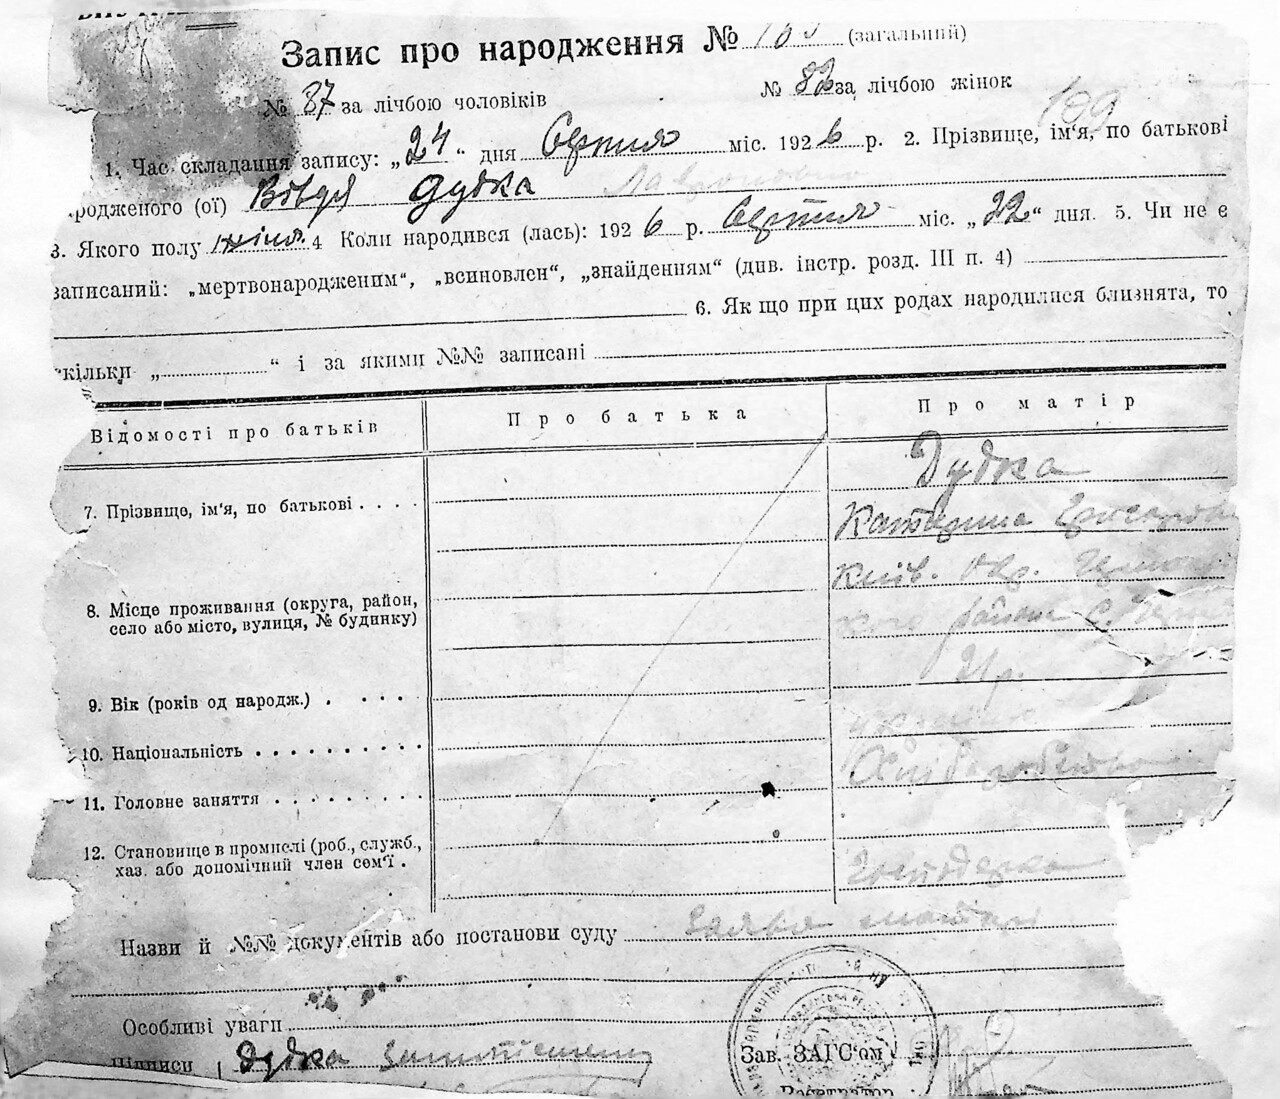 Запис про народження № (загальний)
№ 87 за лічбою чоловіків № 82 за лічбою жінок
169
1. Час складання запису: „24“ дня Серпня міс. 1926 р. 2. Прізвище, ім'я, по батькові
родженого (ої) Дудка
3. Якого полу жіноч. 4 Коли народився (лась): 1926 р. Серпня міс. „22“ дня. 5. Чи не є
записаний: „мертвонародженим“, „всиновлен“, „знайденням“ (див. інстр. розд. III п. 4)
6. Як що при цих родах народилися близнята, то
кільки „ “ і за якими №№ записані
Відомості про батьків Про батька Про матір
7. Прізвище, ім'я, по батькові Дудка
Катерина
8. Місце проживання (округа, район, село або місто, вулиця, № будинку) Київ. Окр.
району с.
9. Вік (років од народж.) 21 р.
10. Національність
11. Головне заняття Хліборобство
12. Становище в промислі (роб., служб., хаз. або допомічний член сем'ї. Господарка
Назви й №№ документів або постанови суду Заява матері
Особливі уваги
Підписи Дудка Зав. ЗАГС'ом